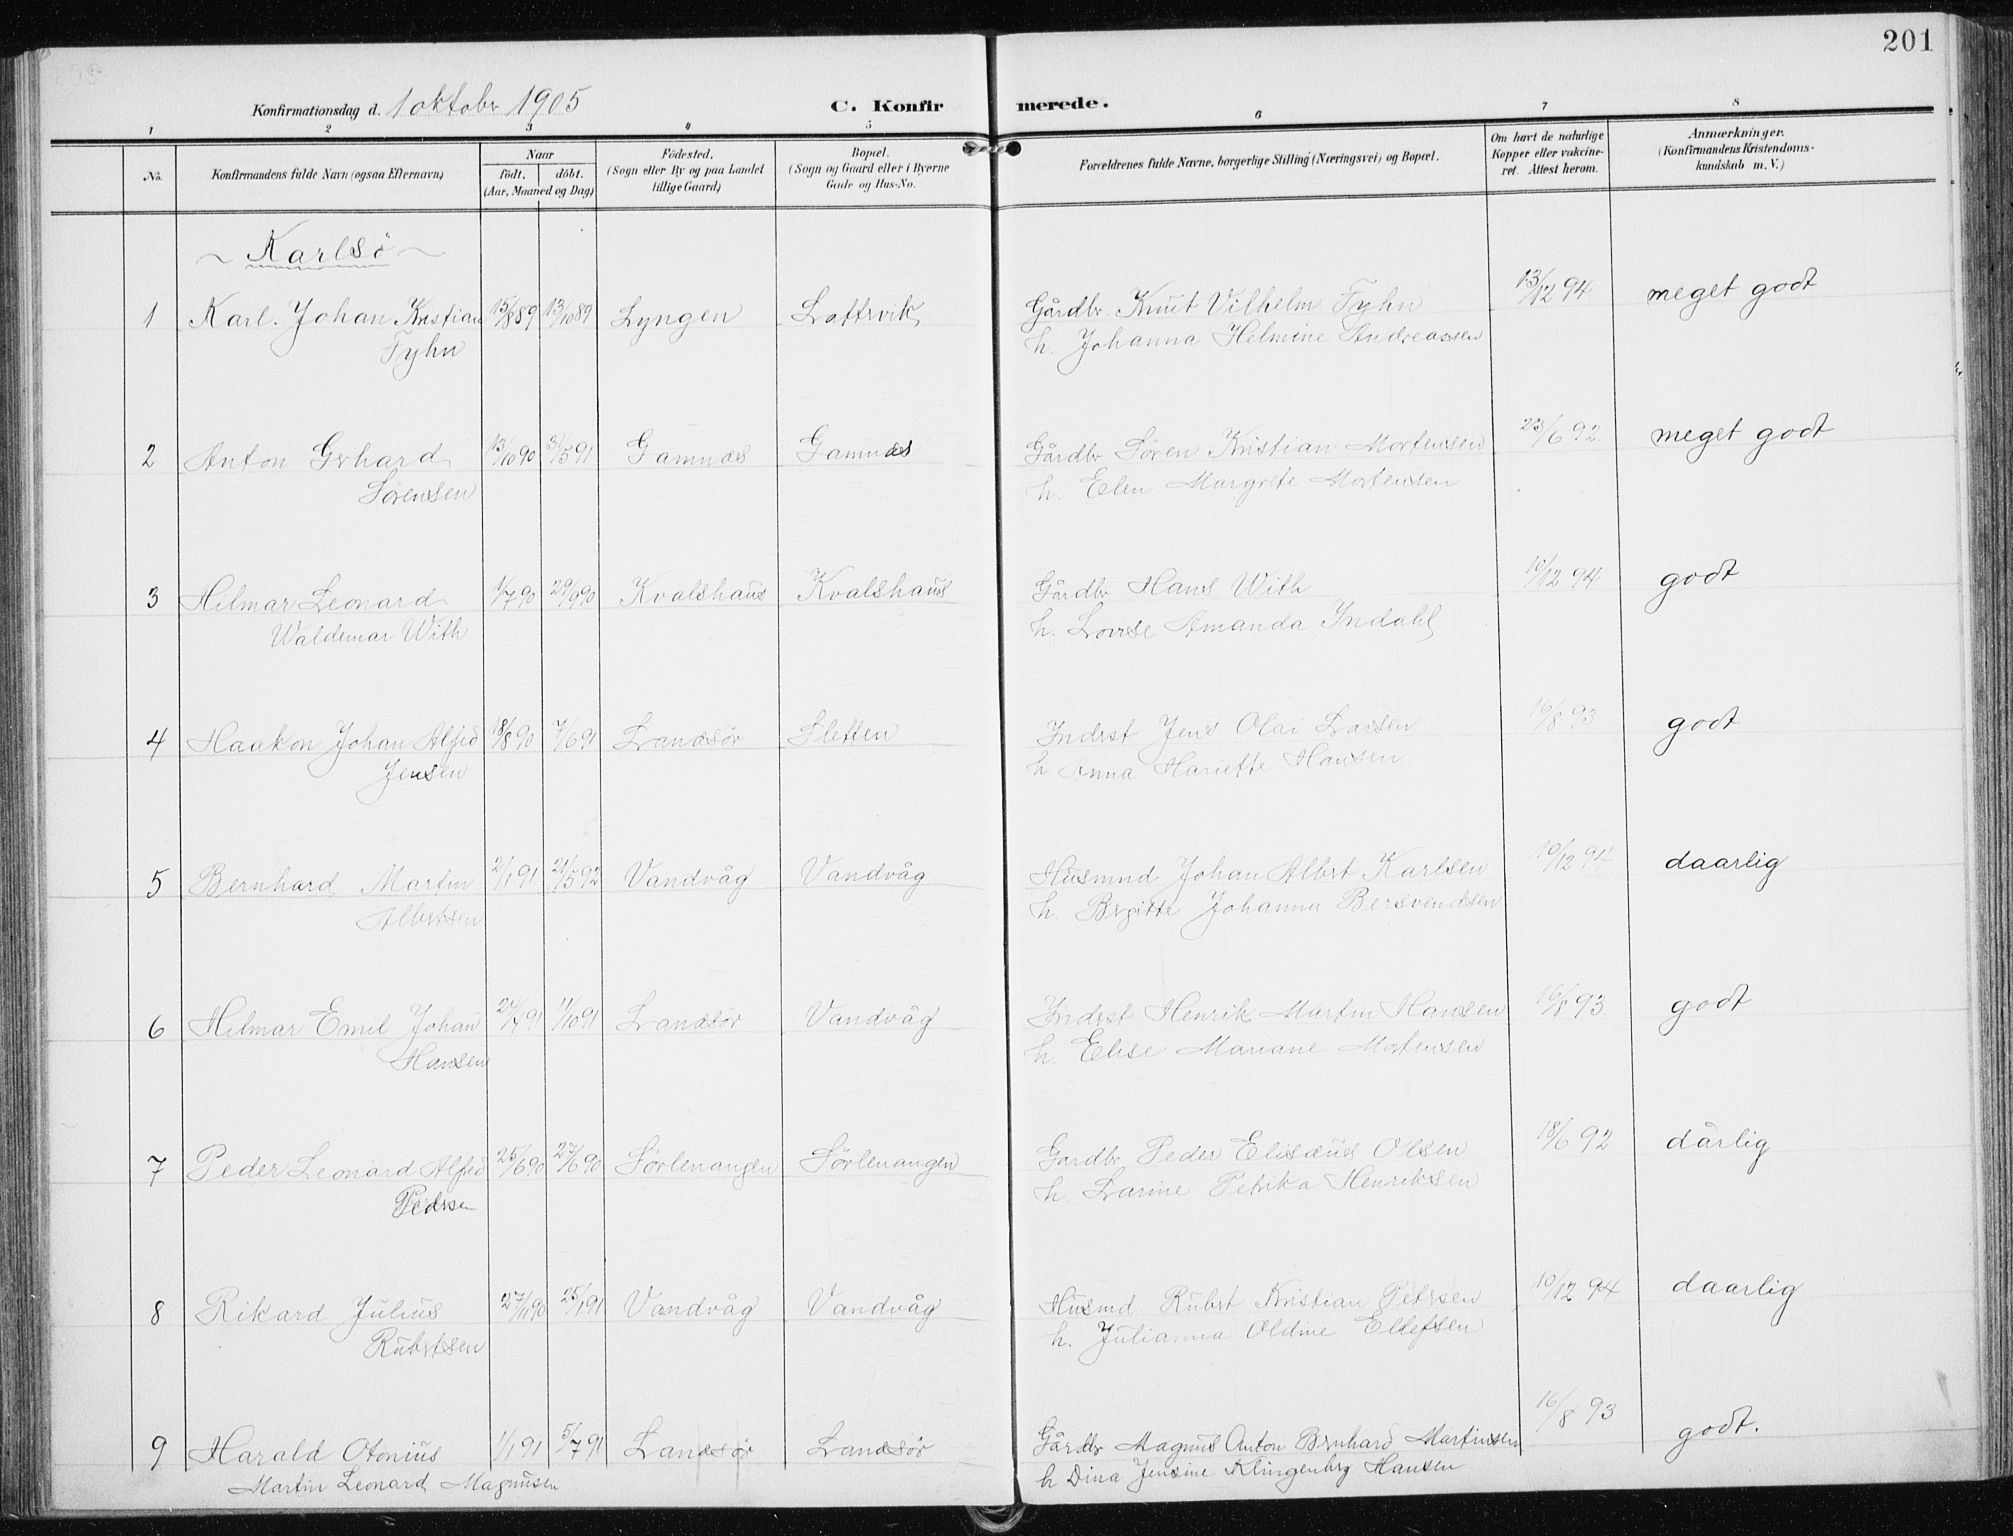 201
Konfirmationsdag d. 1 oktober 1905 C. Konfirmerede.
1 2 3 4 5 6 7 8
No. Konfirmandens fulde Navn (ogsaa Efternavn) Naar født. døbt. (Aar, Maaned og Dag) Fødested. (Sogn eller By og paa Landet tillige Gaard) Bopæl. (Sogn og Gaard eller i Byerne Gade og Hus-No. Forældrenes fulde Navne, borgerlige Stilling (Næringsvei) og Bopæl. Om havt de naturlige Kopper eller vakcineret. Attest herom. Anmærkninger. (Konfirmandens Kristendomskundskab m. V.)
~ Karlsö ~
1 Karl. Johan Kristian 15/8 89 13/10 89 Lyngen Lattervik Gårdbr. Knut Vilhelm Fyhn 13/12 94 meget godt
Fyhn h. Johanna Helmine Andreassen
2 Anton Gerhard 13/10 90 31/5 91 Gamnæs Gamnæs Gårdbr Sören Kristian Mortensen 23/6 92 meget godt
Sörensen h. Elen Margrete Mortensen
3 Hilmar Leonard 1/7 90 29/9 90 Kvalshaus Kvalshaus Gårdbr Hans With 10/12 94 godt
Waldemar With h. Lovise Amanda Indahl
4 Haakon Johan Alfred 18/8 90 7/6 91 Lanesör Sletten Inderst Jens Olai Larsen 16/8 93 godt
Jensen h Anna Hariette Hansen
5 Bernhard Martin 2/1 91 21/5 92 Vandvåg Vandvåg Husmnd Johan Albert Karlsen 10/12 94 daarlig
Albertsen h. Birgitte Johanna Bersvendsen
6 Hilmar Emil Johan 24/7 91 11/10 91 Lanesör Vandvåg Inderst Henrik Martin Hansen 16/8 93 godt
Hansen h. Elise Mariane Mortensen
7 Peder Leonard Alfred 25/6 90 27/6 90 Sörlenangen Sörlenangen Gardbr Peder Elisæus Olsen 18/6 92 dårlig
Pedersen h. Larine Petrika Henriksen
8 Rikard Julius 27/11 90 25/1 91 Vandvåg Vandvåg Husmd. Rubert Kristian Petersen 10/12 94 daarlig
Rubertsen h. Julianna Oldine Ellefsen
9 Harald Otonius 1/1 91 5/7 91 Lanesör Lanesör Gårdbr Magnus Anton Bernhard Martinsen 16/8 93 godt.
Martin Leonard Magnusen h Dina Jensine Klingenberg Hansen